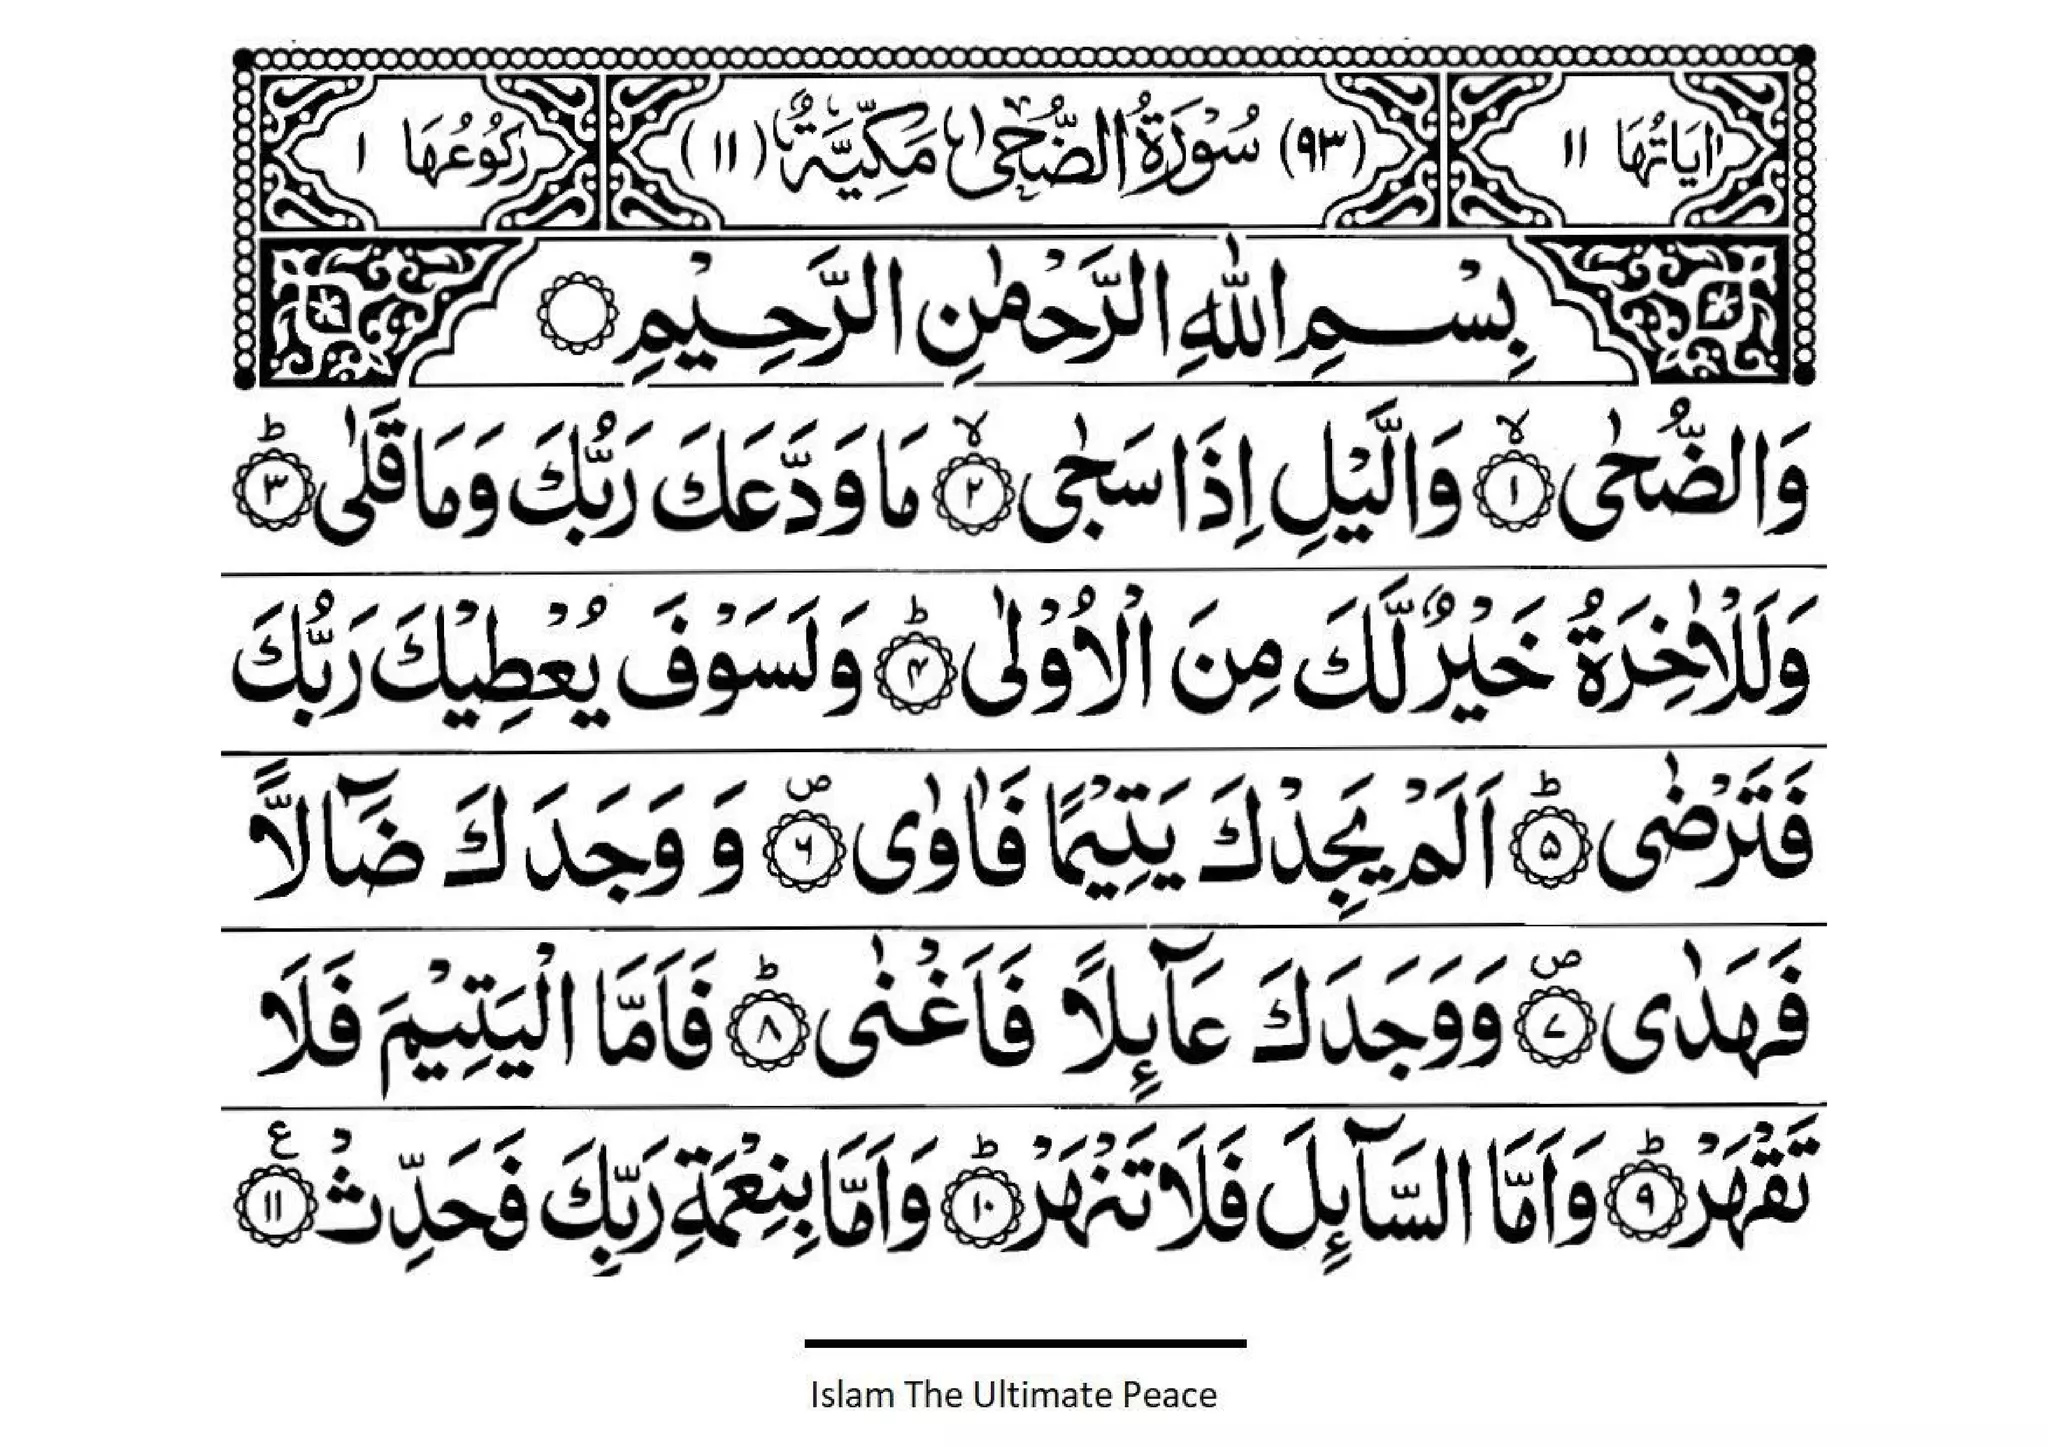 اٰيَاتُهَا ١١ (٩٣) سُوْرَةُ الضُّحٰى مَكِّيَّةٌ (١١) رُكُوْعُهَا ١
بِسْمِ اللّٰهِ الرَّحْمٰنِ الرَّحِيْمِ
وَالضُّحٰى ۙ﴿١﴾ وَالَّيْلِ اِذَا سَجٰى ۙ﴿٢﴾ مَا وَدَّعَكَ رَبُّكَ وَمَا قَلٰى ؕ﴿٣﴾
وَلَلْاٰخِرَةُ خَيْرٌ لَّكَ مِنَ الْاُوْلٰى ؕ﴿۴﴾ وَلَسَوْفَ يُعْطِيْكَ رَبُّكَ
فَتَرْضٰى ؕ﴿۵﴾ اَلَمْ يَجِدْكَ يَتِيْمًا فَاٰوٰى ۪﴿۶﴾ وَ وَجَدَكَ ضَآلًّا
فَهَدٰى ۪﴿۷﴾ وَوَجَدَكَ عَآئِلًا فَاَغْنٰى ؕ﴿٨﴾ فَاَمَّا الْيَتِيْمَ فَلَا
تَقْهَرْ ؕ﴿٩﴾ وَاَمَّا السَّآئِلَ فَلَا تَنْهَرْ ؕ﴿١٠﴾ وَاَمَّا بِنِعْمَةِ رَبِّكَ فَحَدِّثْ ﴿١١﴾ ع
Islam The Ultimate Peace